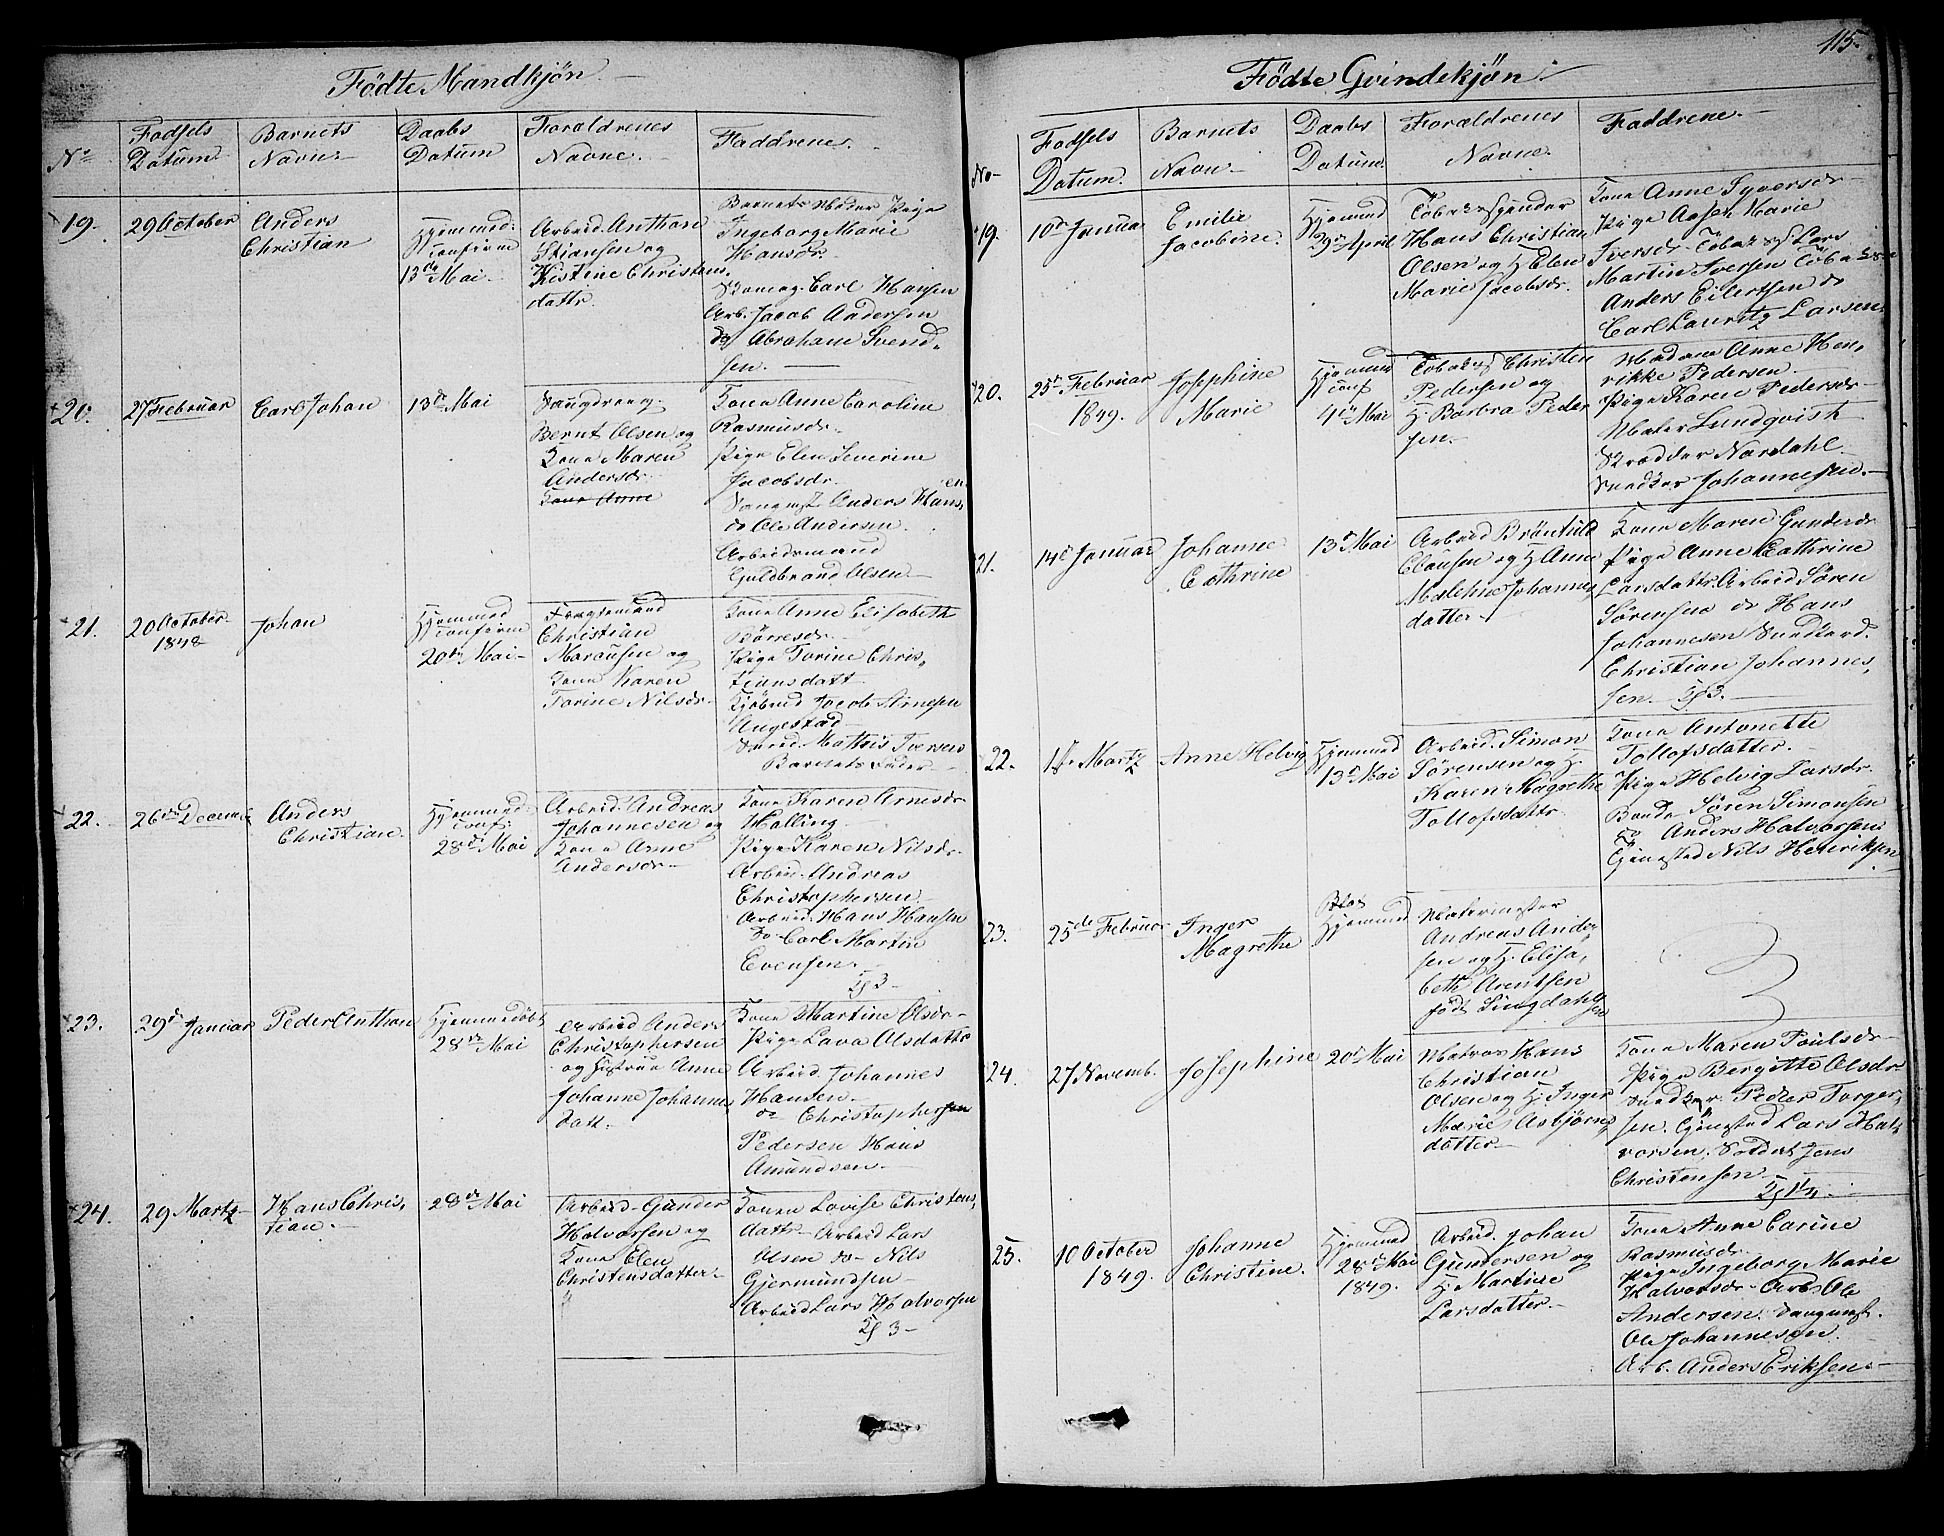 Födte Mandkjön.
No
Fødsels Datum
Barnets Navn
Daabs Datum
Forældrenes Navne.
Faddrene.
19.
29 October
Anders
Christian
Hjemmed.
Confirm
13de Mai
Arbeid. Anthon
Stiansen og
Kistine Christens
dattr.
Barnets Moder Pige
Ingeborg Marie
Hansdr.
Skomag. Carl Hansen
Arb. Jacob Andersen
do Abraham Svend-
sen.
20.
27 Februar
Carl Johan
13de Mai
Bernt Olsen og
Kone Maren
Andersdr.
Kone Anne
Kone Anne Caroline
Rasmusdr.
Pige Elen Severine
Jacobsdr.
Anders Hansen
do Ole Andersen.
Arbeidsmand
Guldbrand Olsen
21.
20 October
1848
Johan
Hjemmed
Confirm
20de Mai
Christian
og
Kone Karen
Torine Nilsdr.
Kone Anne Elisabeth
Börresdr.
Pige Torine Chris,
tiansdatt.
Jacob Arnesen
Mathis Iversen
Barnets Fader
22.
26de Decemb
Anders
Christian.
Hjemmed.
Conf:
28de Mai
Arbeid. Andreas
Johannesen og
Kone Anne
Andersdr.
Kone Karen Arnesdr.
Holling.
Pige Karen Nilsdr.
Arbeid. Andreas
Christophersen
Arbeid. Hans Hansen
do Carl Martin
Evensen.
23.
29de Januar
Peder Anthon
Hjemmedöbt
28de Mai
Arbeid Anders
Christophersen
og Hustrue Anne
Johanne Johannes
datt.
Kone Martine Olsdr.
Pige Lava Olsdattr
Arbeid. Johannes
Hansen
do Christophersen
Pedersen Hans
Amundsen.
24.
29 Martz
Hans Chris,
tian.
28de Mai
Arbeid. Gunder
Halvorsen og
Kone Elen
Christensdatter
Konen Lovise Christens,
dattr. Arbeid Lars
Olsen do Nils
Gjermundsen
Arbeid Lars Halvorsen
115.
Födte Qvindekjön
No
Fødsels Datum.
Barnets Navn
Daabs Datum.
Forældrenes Navne.
Faddrene.
19.
10de Januar
Emilie
Jacobine.
Hjemmed
29de April
Hans Christian
Olsen og H. Elen
Marie Jacobsdr.
Kone Anne Syversdr
Pige Aasen Marie
Iversdr. Lars
Martin Iversen
Anders Eilertsen do
Carl Lauritz Larsen
20.
25de Februar
1849.
Josephine
Marie
Hjemmed
Conf
4de Mai
Christen
Pedersen og
H. Barbra Peder
sen.
Madame Anne Hen,
rikke Pedersen.
Pige Karen Pedersdr.
Maler Lundqvist
Skrædder Nordahl
Snedker Johannesen.
21.
14de Januar
Johanne
Cathrine
13de Mai
Arbeid
Clausen og H. Anne
Malehne Johannes
datter
Kone Maren Gundersdr
Pige Anne Cathrine
Larsdattr. Arbeid Sören
Sörensen do Hans
Johannesen Snedkerd.
Christian Johannes,
sen.
22.
1ste Martz
Anne Helvig
Hjemmed
13de Mai
Arbeid. Simon
Sörensen og H.
Karen Magrethe
Tollofsdattr.
Kone Antonette
Tollofsdatter.
Pige Helvig Larsdr.
Bonde Sören Simonsen
do Anders Halvorsen
Tjenested Nils Henriksen
23.
25de Februar
Inger
Magrethe
Hjemmed
Andreas Ander
sen og H. Elisa,
beth Arentsen
född
24.
27 Novemb.
Josephine
20de Mai
Matros Hans
Christian
Olsen og H. Inger
Marie Asbjörns
datter
Kone Maren Poulsdr.
Pige Bergitte Olsdr
Snedker Peder Torger,
sen. Tjenested Lars Hal,
vorsen. Soldat Jens
Christensen
25.
10 October
1849.
Johanne
Christine.
Hjemmed
28de Mai
1849.
Arbeid. Johan
Gundersen og
H. Martine
Larsdatter.
Kone Anne Carine
Rasmusdr.
Pige Ingeborg Marie
Halvorsdr. Arb. Ole
Andersen.
Ole Johannesen.
Arb. Anders Eriksen.